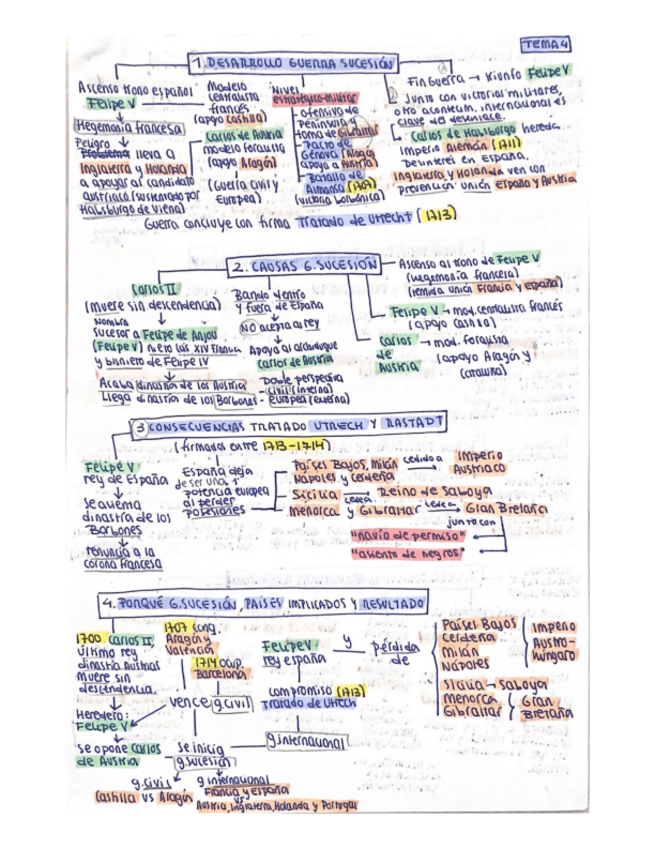 TEMA 4
1. DESARROLLO GUERRA SUCESIÓN
Ascenso trono español
Felipe V
Hegemonía francesa
Peligro
lleva a
Inglaterra y Holanda
a apoyar al candidato
austriaco (sustentado por
Habsburgo de Viena)
Modelo
centralista
francés
(apoyo Castilla)
Carlos de Austria
modelo foralista
(apoyo Aragón)
(Guerra civil y
Europea)
Nivel
estratégico-militar
ofensiva de
Península
toma de Gibraltar
Pacto de
Génova (Aragón
apoya a Austria)
Batalla de
Almansa (1707)
(victoria borbónica)
Fin Guerra → triunfo Felipe V
Junto con victorias militares,
otro acontecim. internacional es
clave del desenlace.
Carlos de Habsburgo hereda
Imperio Alemán (1711)
Desinterés en España.
Inglaterra y Holanda ven con
prevención unión España y Austria
Guerra concluye con firma Tratado de Utrecht (1713)
2. CAUSAS G.SUCESIÓN
Carlos II
(muere sin descendencia)
Nombra
sucesor a Felipe de Anjou
(Felipe V) nieto Luis XIV Francia
y bisnieto de Felipe IV
Acaba dinastía de los Austria
Llega dinastía de los Borbones
Bando dentro
y fuera de España
NO acepta a rey
Apoya al archiduque
Carlos de Austria
Doble perspectiva
- civil (interna)
- europea (externa)
Ascenso al trono de Felipe V
(hegemonía francesa)
(temida unión Francia y España)
Felipe V → mod. centralista francés
(apoyo Castilla)
Carlos
de
Austria
→ mod. foralista
(apoyo Aragón y
Cataluña)
3 CONSECUENCIAS TRATADO UTRECH Y RASTADT
(firmados entre 1713-1714)
Felipe V
rey de España
Se auema
dinastía de los
Borbones
renuncia a la
corona francesa
España deja
de ser una 1ª
potencia europea
al perder
posesiones
Países Bajos, Milán
Nápoles y Cerdeña
cedido a
Imperio
Austriaco
Sicilia cedea Reino de Saboya
Menorca y Gibraltar cedea Gran Bretaña
junto con
"navío de permiso"
"asiento de negros"
4. PORQUÉ G.SUCESIÓN, PAÍSES IMPLICADOS Y RESULTADO
1700 Carlos II,
último rey
dinastía Austrias
muere sin
descendencia.
Heredero:
Felipe V
se opone Carlos
de Austria
1707 conq.
Aragón y
Valencia
1714 ocup.
Barcelona
vence g.civil
se inicia
g.sucesión
g.civil
Castilla vs Aragón
g internacional
Francia y España
vs
Austria, Inglaterra, Holanda y Portugal
Felipe V
rey españa
compromiso (1713)
Tratado de Utrech
g.internacional
y
pérdida
de
Países Bajos
Cerdeña
Milán
Nápoles
Imperio
Austro-
húngaro
Sicilia → Saboya
Menorca
Gibraltar
Gran
Bretaña